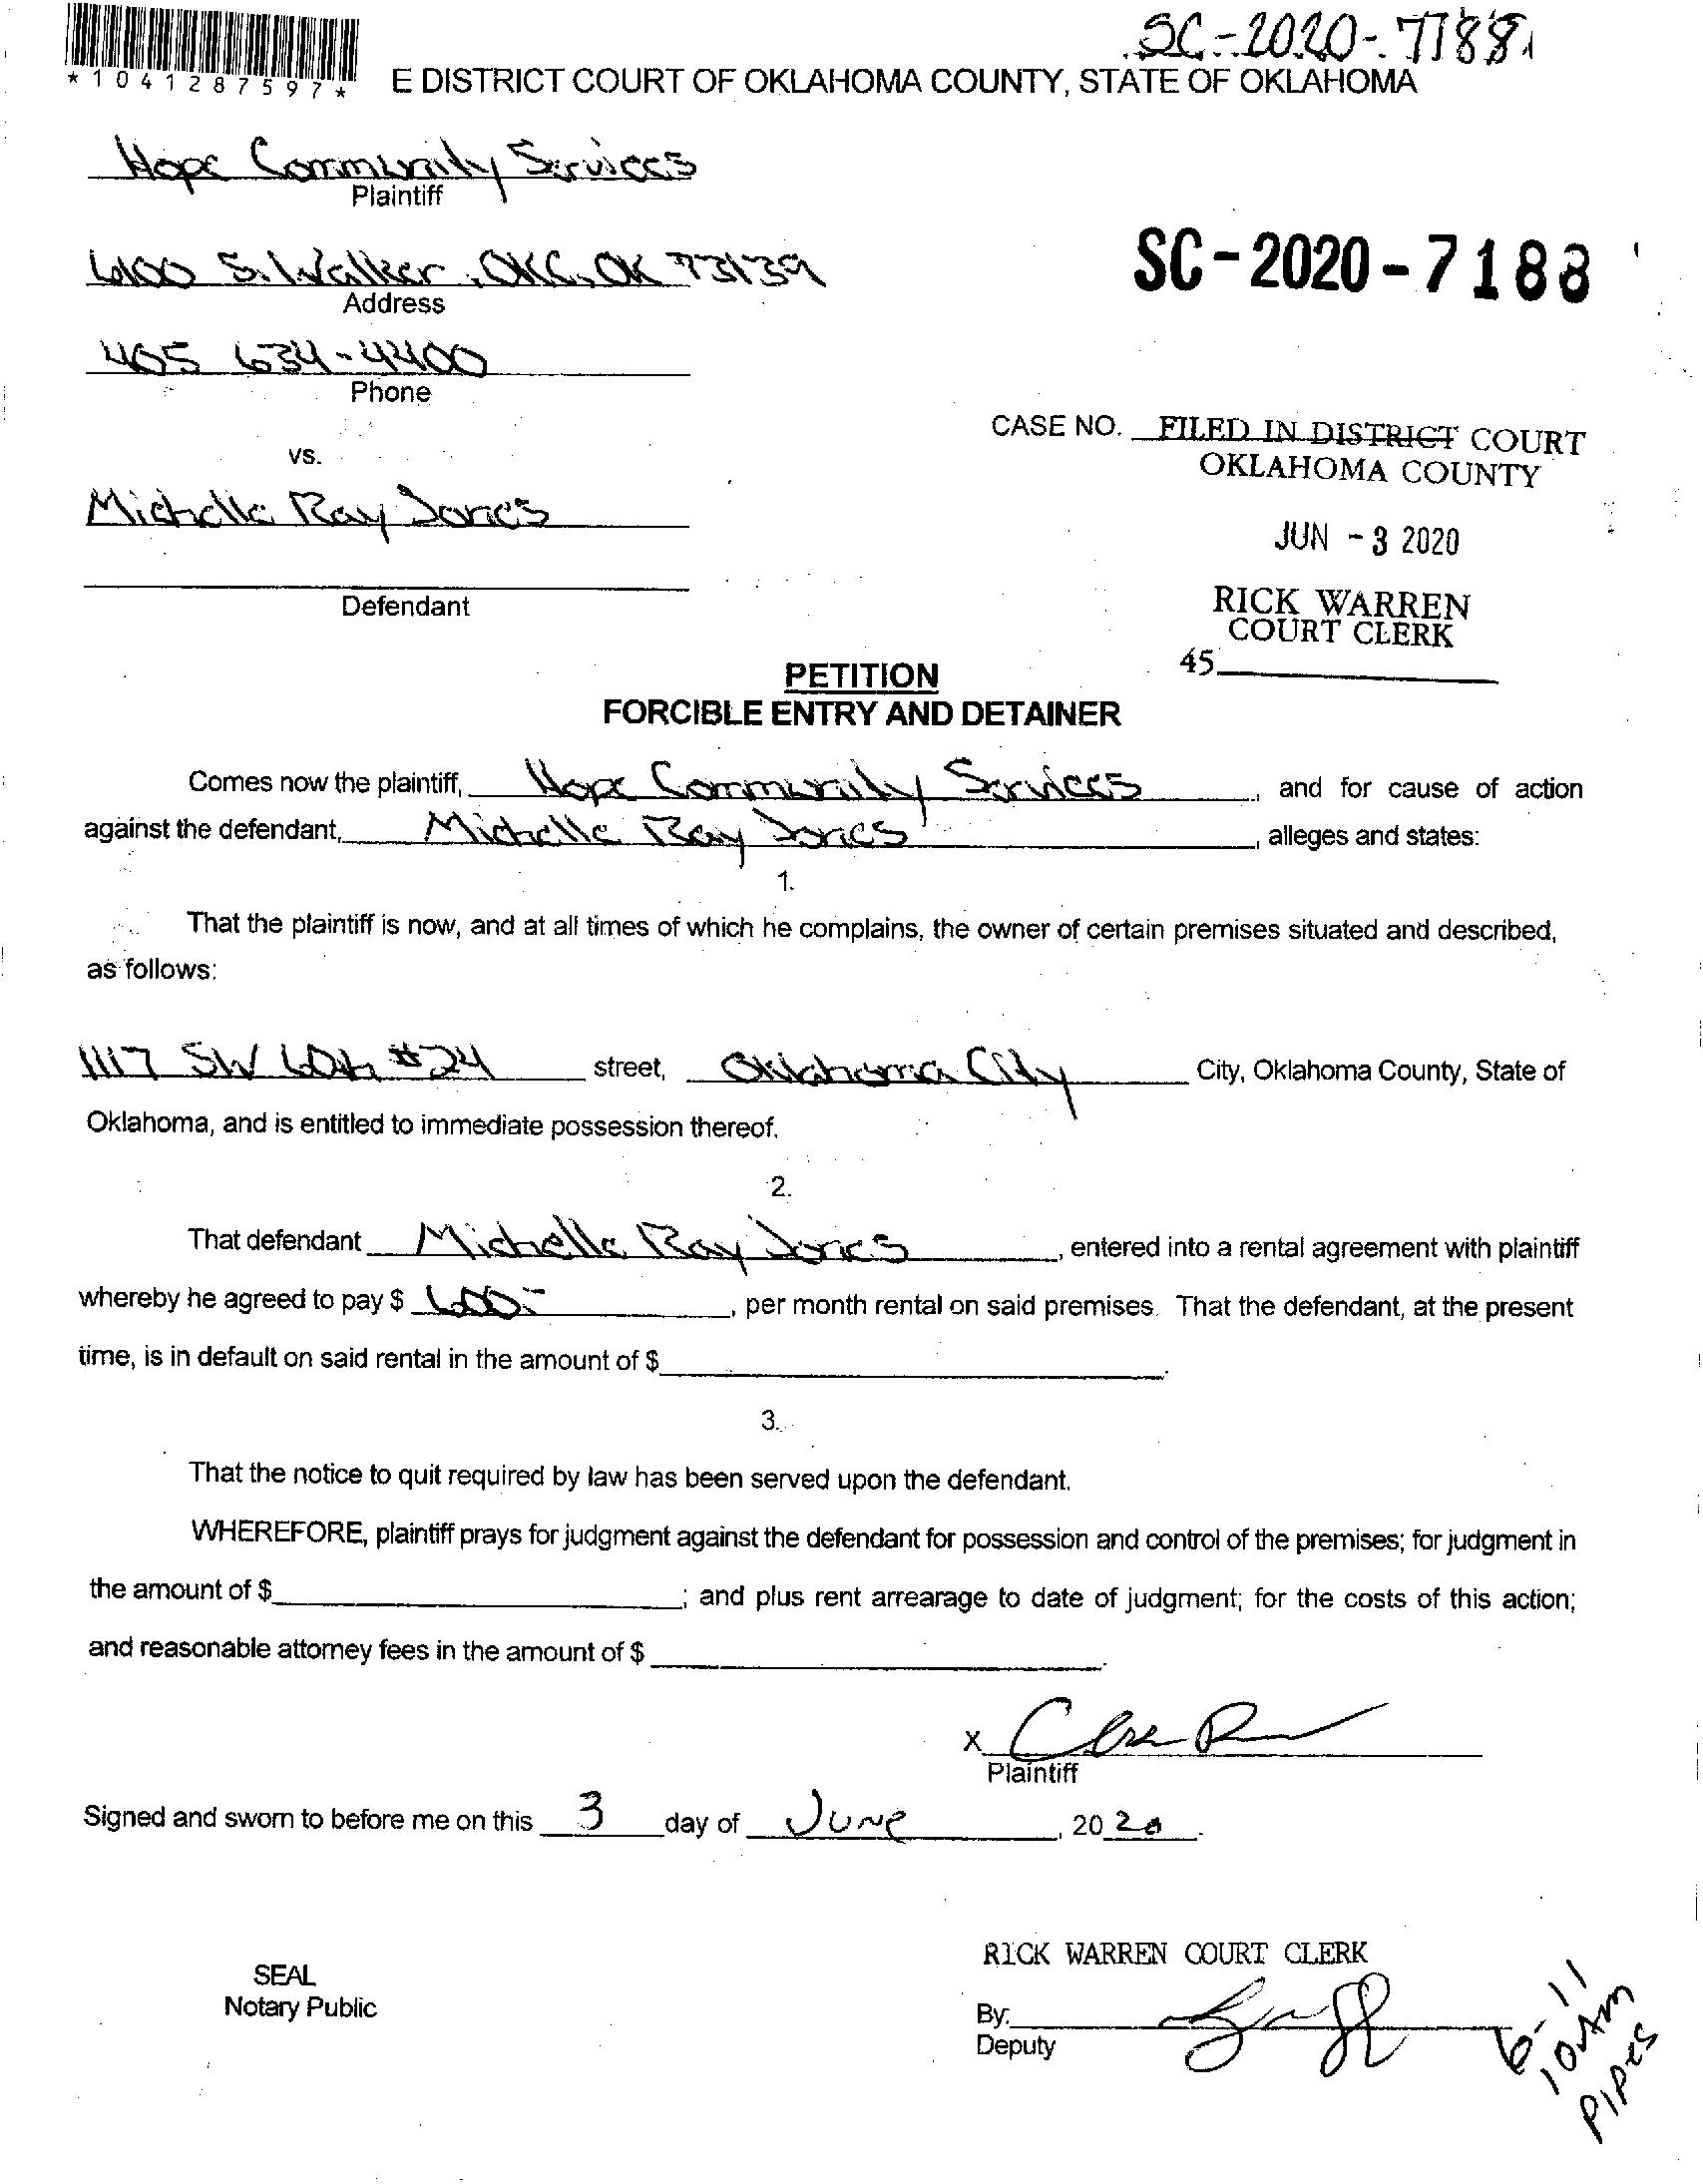 SC-2020-7188
*1041287597*
E DISTRICT COURT OF OKLAHOMA COUNTY, STATE OF OKLAHOMA
Hope Community Services
Plaintiff
6100 S. Walker, OKC, OK 73139
Address
SC-2020-7188
405 634-4400
Phone
CASE NO. FILED IN DISTRICT COURT
OKLAHOMA COUNTY
vs.
Michelle Ray Jones
JUN - 3 2020
Defendant
RICK WARREN
COURT CLERK
45
PETITION
FORCIBLE ENTRY AND DETAINER
Comes now the plaintiff, Hope Community Services, and for cause of action
against the defendant, Michelle Ray Jones, alleges and states:
1.
That the plaintiff is now, and at all times of which he complains, the owner of certain premises situated and described,
as follows:
1117 SW 60th #24 street, Oklahoma City City, Oklahoma County, State of
Oklahoma, and is entitled to immediate possession thereof.
2.
That defendant Michelle Ray Jones, entered into a rental agreement with plaintiff
whereby he agreed to pay $ 600.-, per month rental on said premises. That the defendant, at the present
time, is in default on said rental in the amount of $
3.
That the notice to quit required by law has been served upon the defendant.
WHEREFORE, plaintiff prays for judgment against the defendant for possession and control of the premises; for judgment in
the amount of $ ; and plus rent arrearage to date of judgment; for the costs of this action;
and reasonable attorney fees in the amount of $ .
X
Plaintiff
Signed and sworn to before me on this 3 day of June, 2020.
RICK WARREN COURT CLERK
SEAL
Notary Public
By:
Deputy
6-11
10AM
PIPES